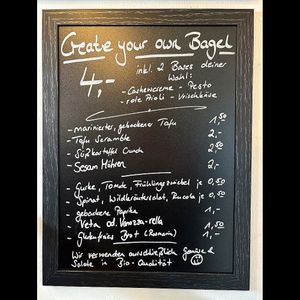 Create your own Bagel
4,-
inkl. 2 Bases deiner
Wahl:
- Cashewcreme - Pesto
- rote Aioli - Frischkäse
- marinierter, gebackener Tofu 1,50
- Tofu Scramble 2,-
- Süßkartoffel Crunch 2,50
- Sesam Möhren 2,-
- Gurke, Tomate, Frühlingszwiebel je 0,50
- Spinat, Wildkräutersalat, Rucola je 0,50
- gebackene Paprika 1,-
- Veta od. Vmozza-rella 1,50
- Glutenfreies Brot 1,-
Wir verwenden ausschließlich Gemüse &
Salate in Bio-Qualität